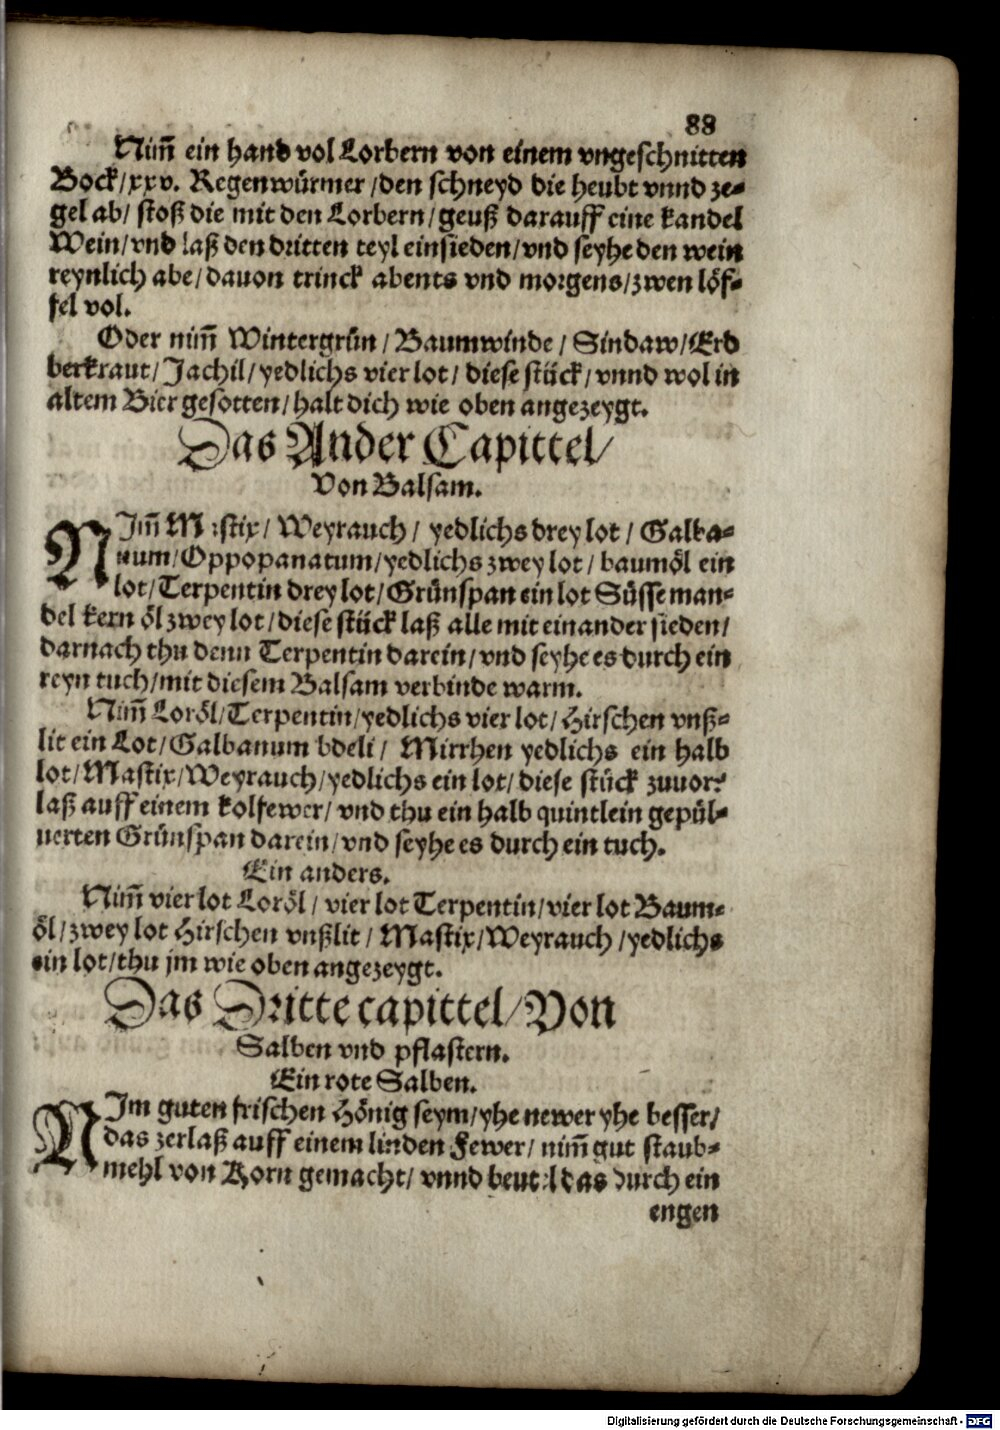 88
Nim̃ ein hand vol Lorbern von einem vngeschnitten
Bock/xxv. Regenwürmer/den schneyd die heubt vnnd ze-
gel ab/ stoß die mit den Lorbern/geuß darauff eine kandel
Wein/vnd laß den dritten teyl einsieden/vnd seyhe den wein
reynlich abe/dauon trinck abents vnd morgens/zwen löf-
fel vol.
Oder nim̃ Wintergrün/Baumwinde/Sindaw/Erd
berkraut/Jachil/yedlichs vier lot/ diese stück/vnnd wol in
altem Bier gesotten/halt dich wie oben angezeygt.
Das Ander Capittel/
Von Balsam.
NIm̃ Mastix/Weyrauch/ yedlichs drey lot/ Galba-
num/Oppopanatum/yedlichs zwey lot/ baumöl ein
lot/Terpentin drey lot/Grünspan ein lot Süsse man-
del kern öl zwey lot/diese stück laß alle mit einander sieden/
darnach thu denn Terpentin darein/vnd seyhe es durch ein
reyn tuch/mit diesem Balsam verbinde warm.
Nim̃ Loröl/Terpentin/yedlichs vier lot/Hirschen vnß-
lit ein Lot/Galbanum bdeli/ Mirrhen yedlichs ein halb
lot/Mastix/Weyrauch/yedlichs ein lot/diese stück zuuor/
laß auff einem kolfewer/vnd thu ein halb quintlein gepül-
uerten Grünspan darein/vnd seyhe es durch ein tuch.
Ein anders.
Nim̃ vier lot Loröl/ vier lot Terpentin/vier lot Baum-
öl/zwey lot Hirschen vnßlit/ Mastix/Weyrauch/yedlichs
ein lot/thu jm wie oben angezeygt.
Das Dritte capittel/Von
Salben vnd pflastern.
Ein rote Salben.
NIm guten frischen Hönig seym/yhe newer yhe besser/
das zerlaß auff einem linden Fewer/ nim̃ gut staub-
mehl von Korn gemacht/ vnnd beutel das durch ein
engen
Digitalisierung gefördert durch die Deutsche Forschungsgemeinschaft - DFG